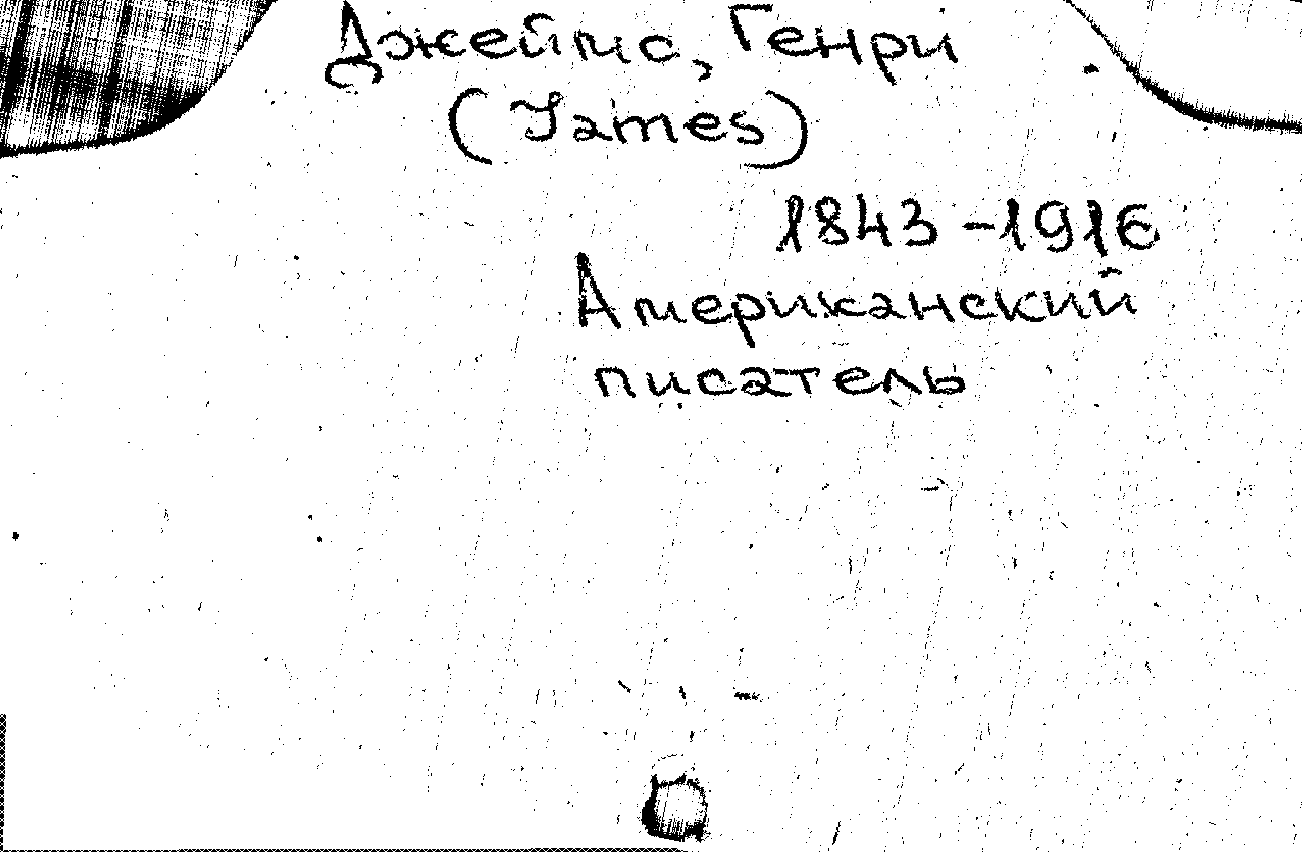 Джеймс, Генри
(James)
1843-1916
Американский
писатель